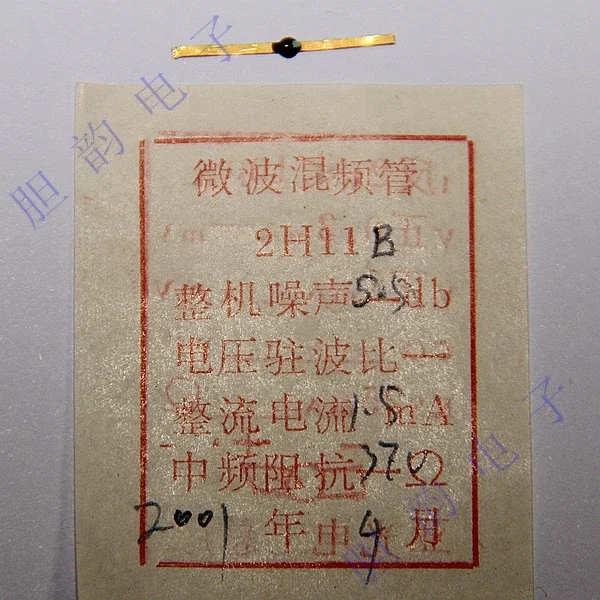 胆韵电子
微波混频管
2H11B
整机噪声5.5db
电压驻波比—
整流电流1.5mA
中频阻抗370Ω
2001年4月
胆韵电子